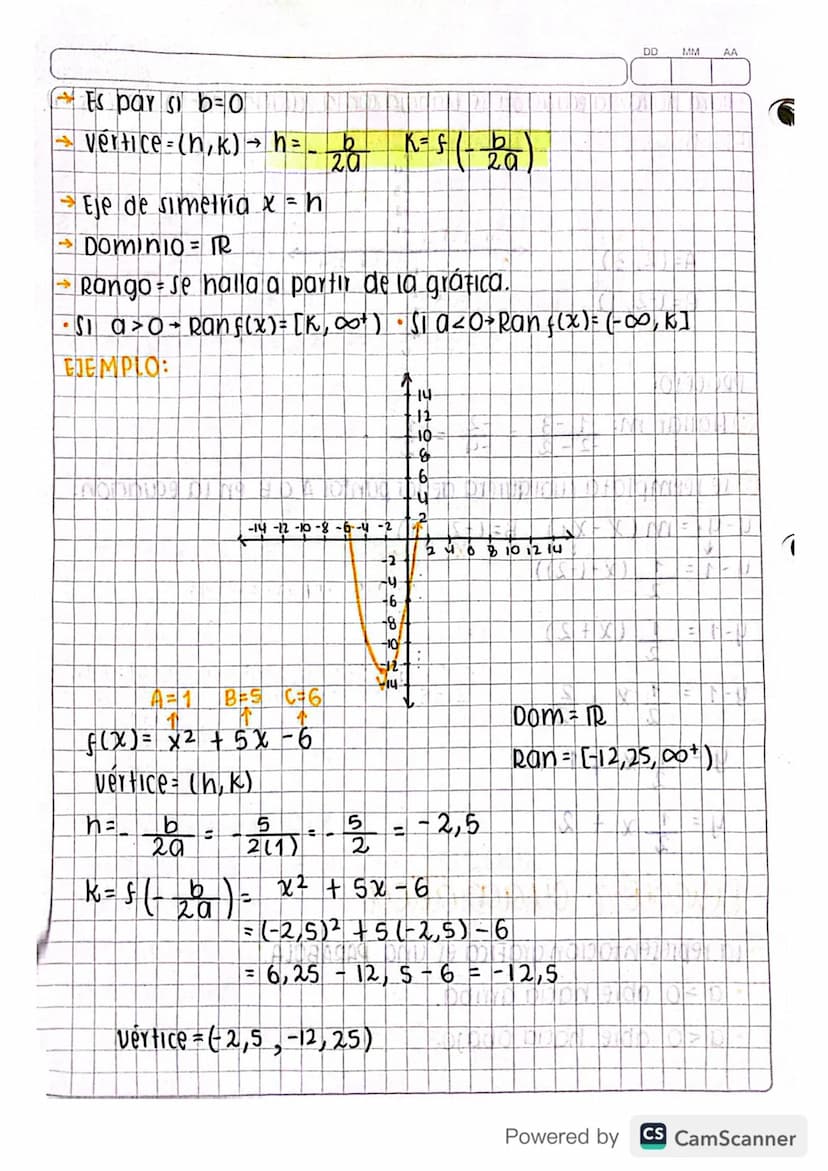 DD MM AA
→ Es par si b=0
→ Vértice=(h,k) → h=- b/2a K=f(-b/2a)
→ Eje de simetría x = h
→ Dominio = ℝ
→ Rango = se halla a partir de la gráfica.
• Si a>0 → Ran f(x)=[K,∞⁺) • Si a<0→Ran f(x)=(-∞,K]
EJEMPLO:
14
12
10
8
6
4
2
-14 -12 -10 -8 -6 -4 -2
2 4 6 8 10 12 14
-2
-4
-6
-8
-10
-12
-14
A=1 B=5 C=6
f(x)= x² + 5x -6
Dom = ℝ
Ran = [-12,25,∞⁺)
Vértice= (h,k)
h=- b/2a = - 5/2(1) = - 5/2 = -2,5
K= f(-b/2a)= x² + 5x - 6
= (-2,5)² + 5(-2,5) - 6
= 6,25 - 12,5 - 6 = -12,5
Vértice =(-2,5 , -12,25)
Powered by CS CamScanner